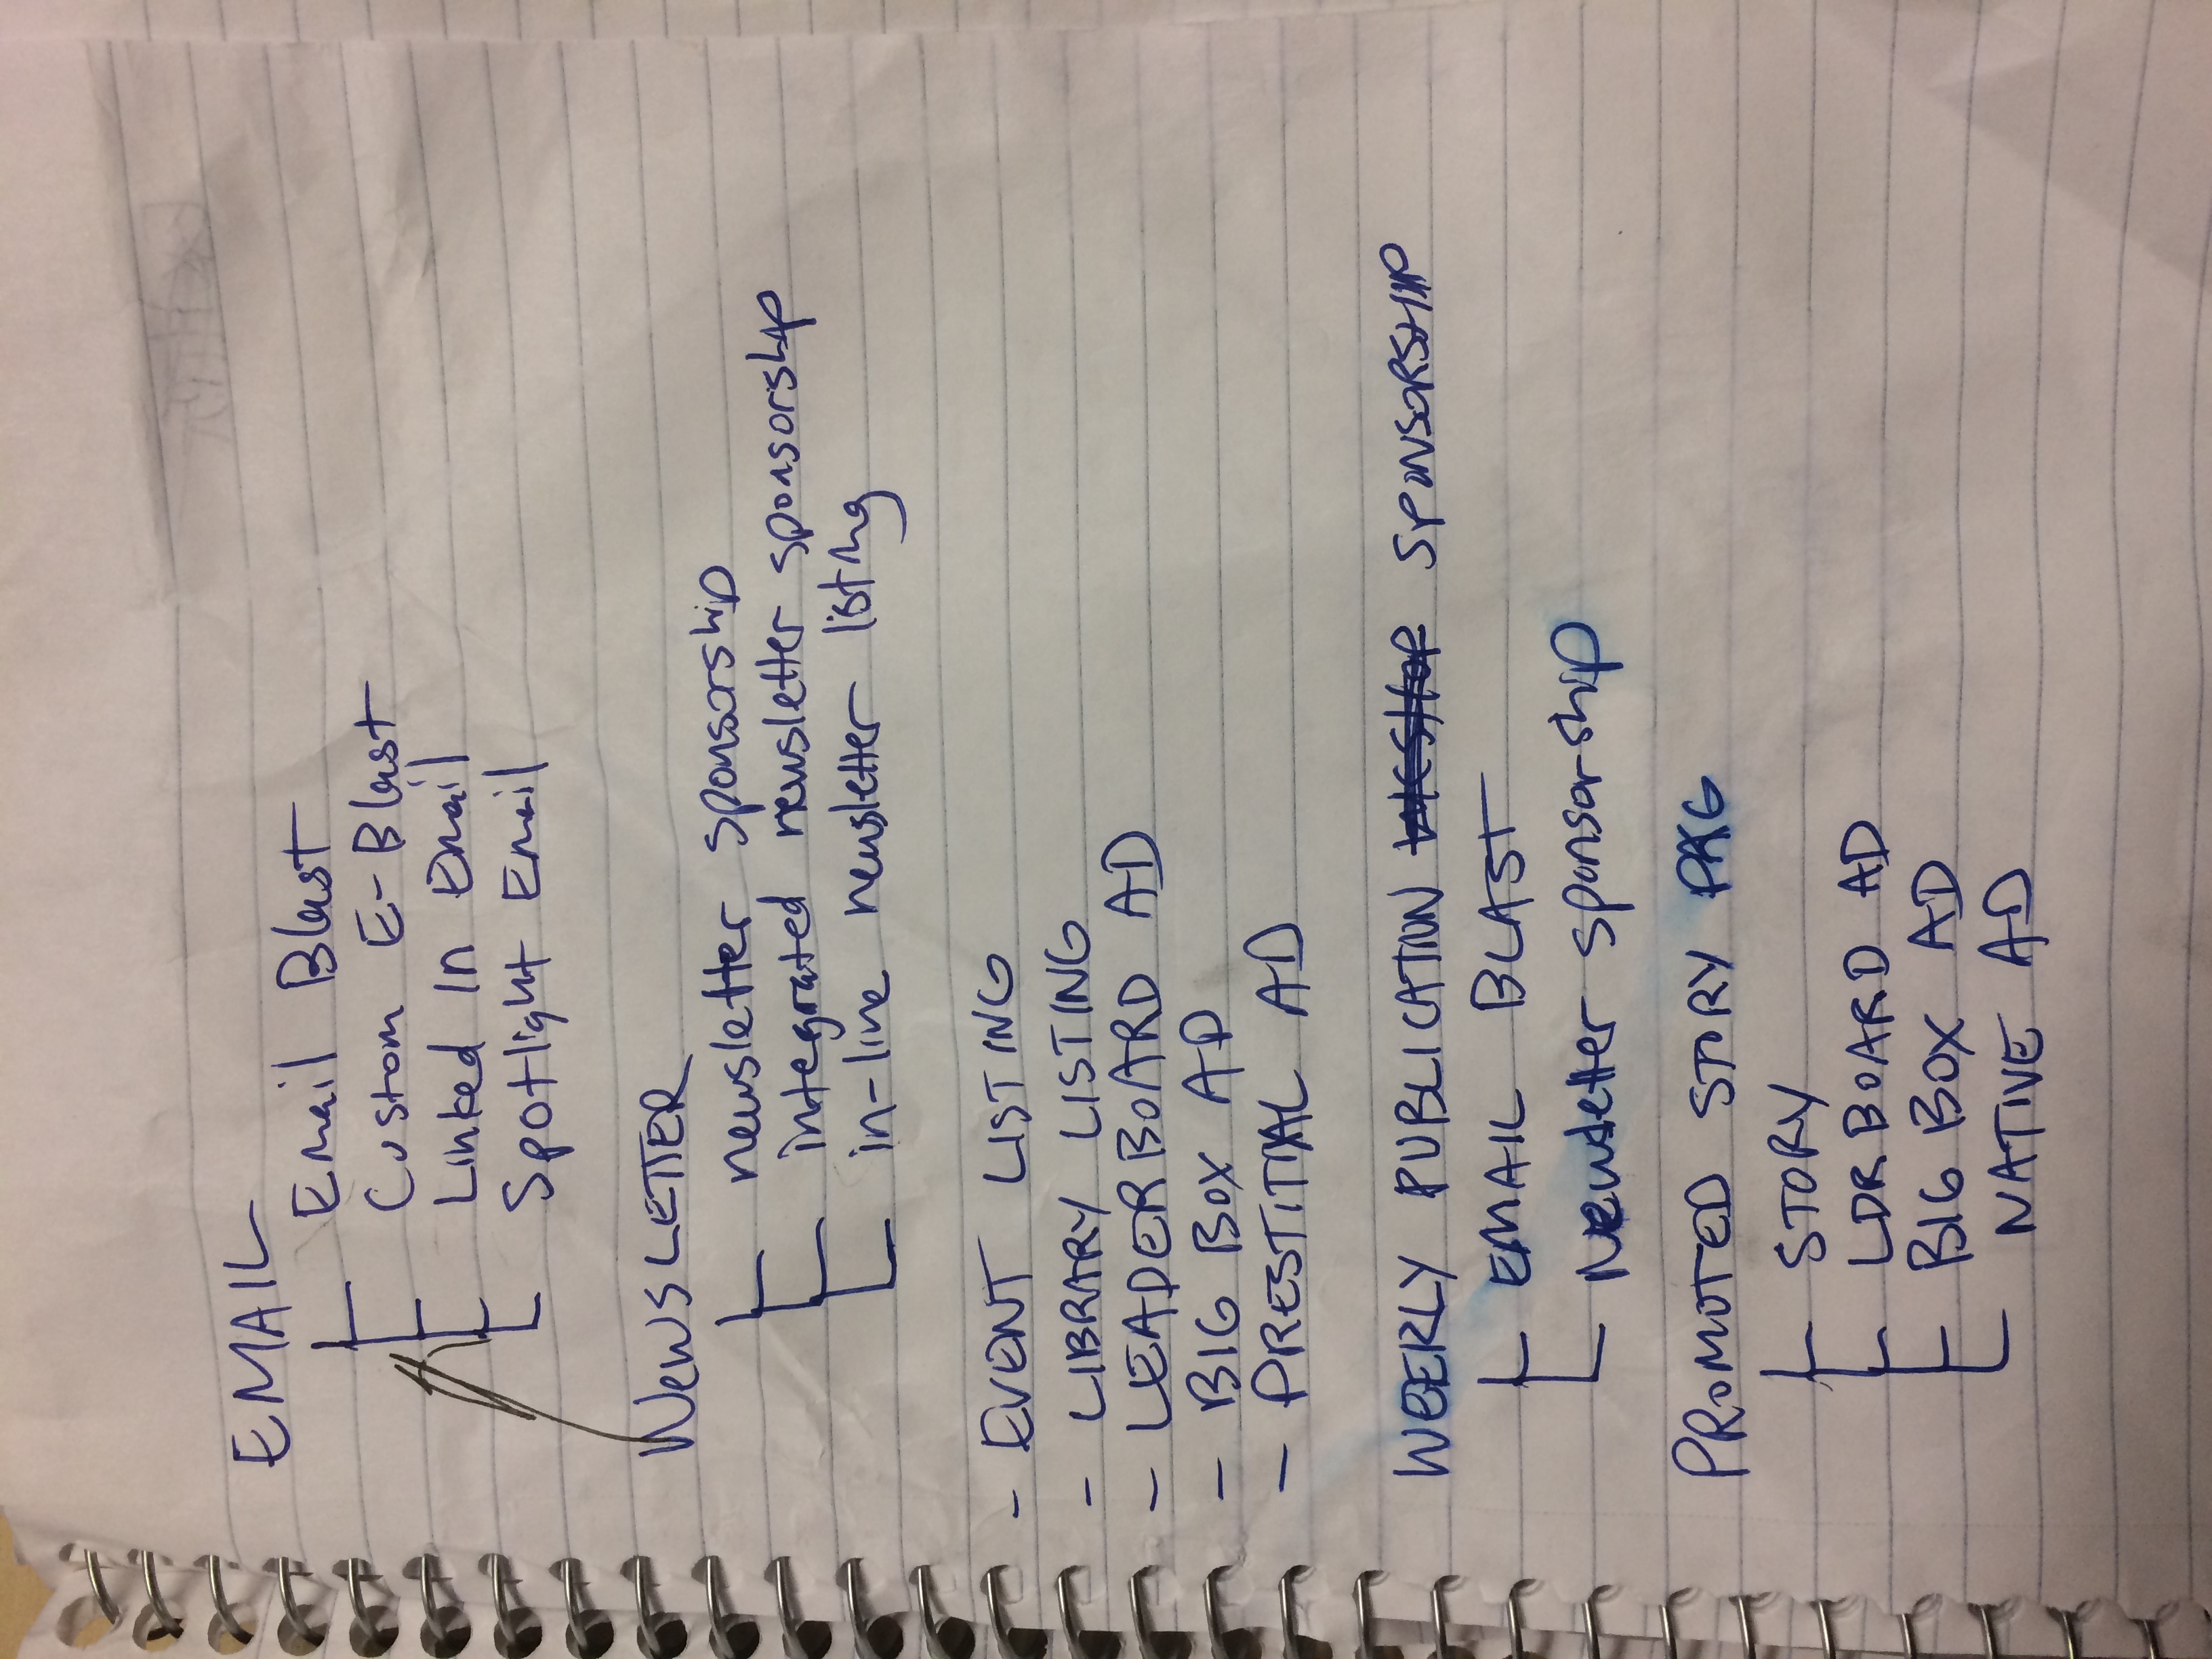 EMAIL
Email Blast
Custom E-Blast
Linked In Email
Spotlight Email
NewSLETTER
newsletter sponsorship
integrated newsletter sponsorship
in-line newsletter listing
- EVENT LISTING
- LIBRARY LISTING
- LEADERBOARD AD
- BIG BOX AD
- PRESTITIAL AD
WEEKLY PUBLICATION SPONSORSHIP
EMAIL BLAST
Newsletter sponsorship
PROMOTED STORY PKG
STORY
LDRBOARD AD
BIG BOX AD
NATIVE AD